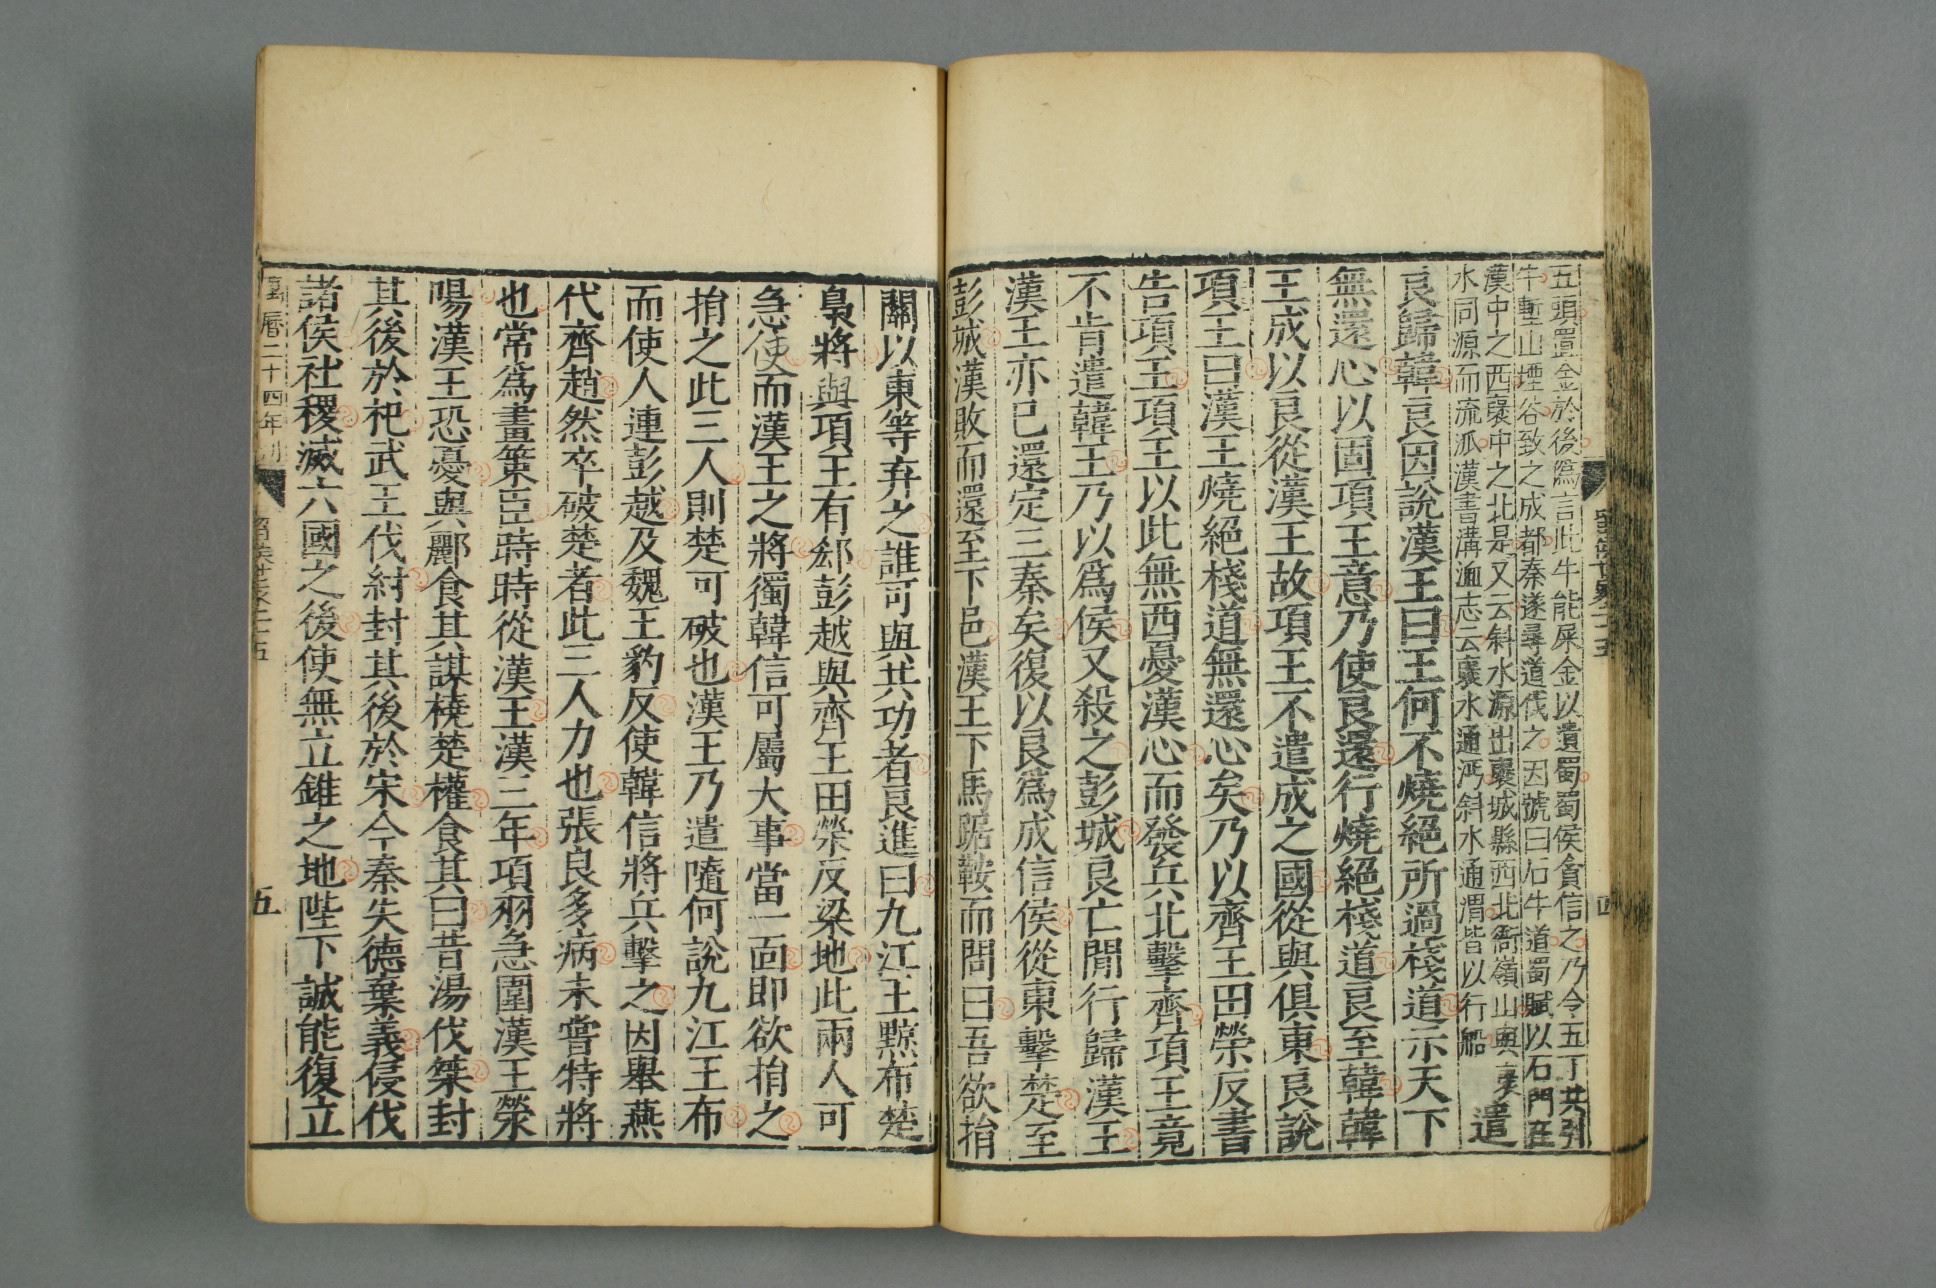 留侯世家二十五
四
五頭置金於後偽言此牛能屎金以遺蜀蜀侯貪信之乃令五丁共引
牛塹山堙谷致之成都秦遂尋道伐之因號曰石牛道蜀賦以石門在
漢中之西襃中之北是又云斜水源出襃城縣西北衙嶺山與襃
水同源而流派漢書溝洫志云襃水通沔斜水通渭皆以行船
遣
良歸韓良因說漢王曰王何不燒絕所過棧道示天下
無還心以固項王意乃使良還行燒絕棧道良至韓韓
王成以良從漢王故項王不遣成之國從與俱東良說
項王曰漢王燒絕棧道無還心矣乃以齊王田榮反書
告項王項王以此無西憂漢心而發兵北擊齊項王竟
不肯遣韓王乃以爲侯又殺之彭城良亡閒行歸漢王
漢王亦已還定三秦矣復以良爲成信侯從東擊楚至
彭城漢敗而還至下邑漢王下馬踞鞍而問曰吾欲捐
關以東等弃之誰可與共功者良進曰九江王黥布楚
梟將與項王有郄彭越與齊王田榮反梁地此兩人可
急使而漢王之將獨韓信可屬大事當一面即欲捐之
捐之此三人則楚可破也漢王乃遣隨何說九江王布
而使人連彭越及魏王豹反使韓信將兵擊之因舉燕
代齊趙然卒破楚者此三人力也張良多病未嘗特將
也常爲畫策臣時時從漢王漢三年項羽急圍漢王滎
陽漢王恐憂與酈食其謀橈楚權食其曰昔湯伐桀封
其後於杞武王伐紂封其後於宋今秦失德棄義侵伐
諸侯社稷滅六國之後使無立錐之地陛下誠能復立
萬曆二十四年刊
留侯世家二十五
五